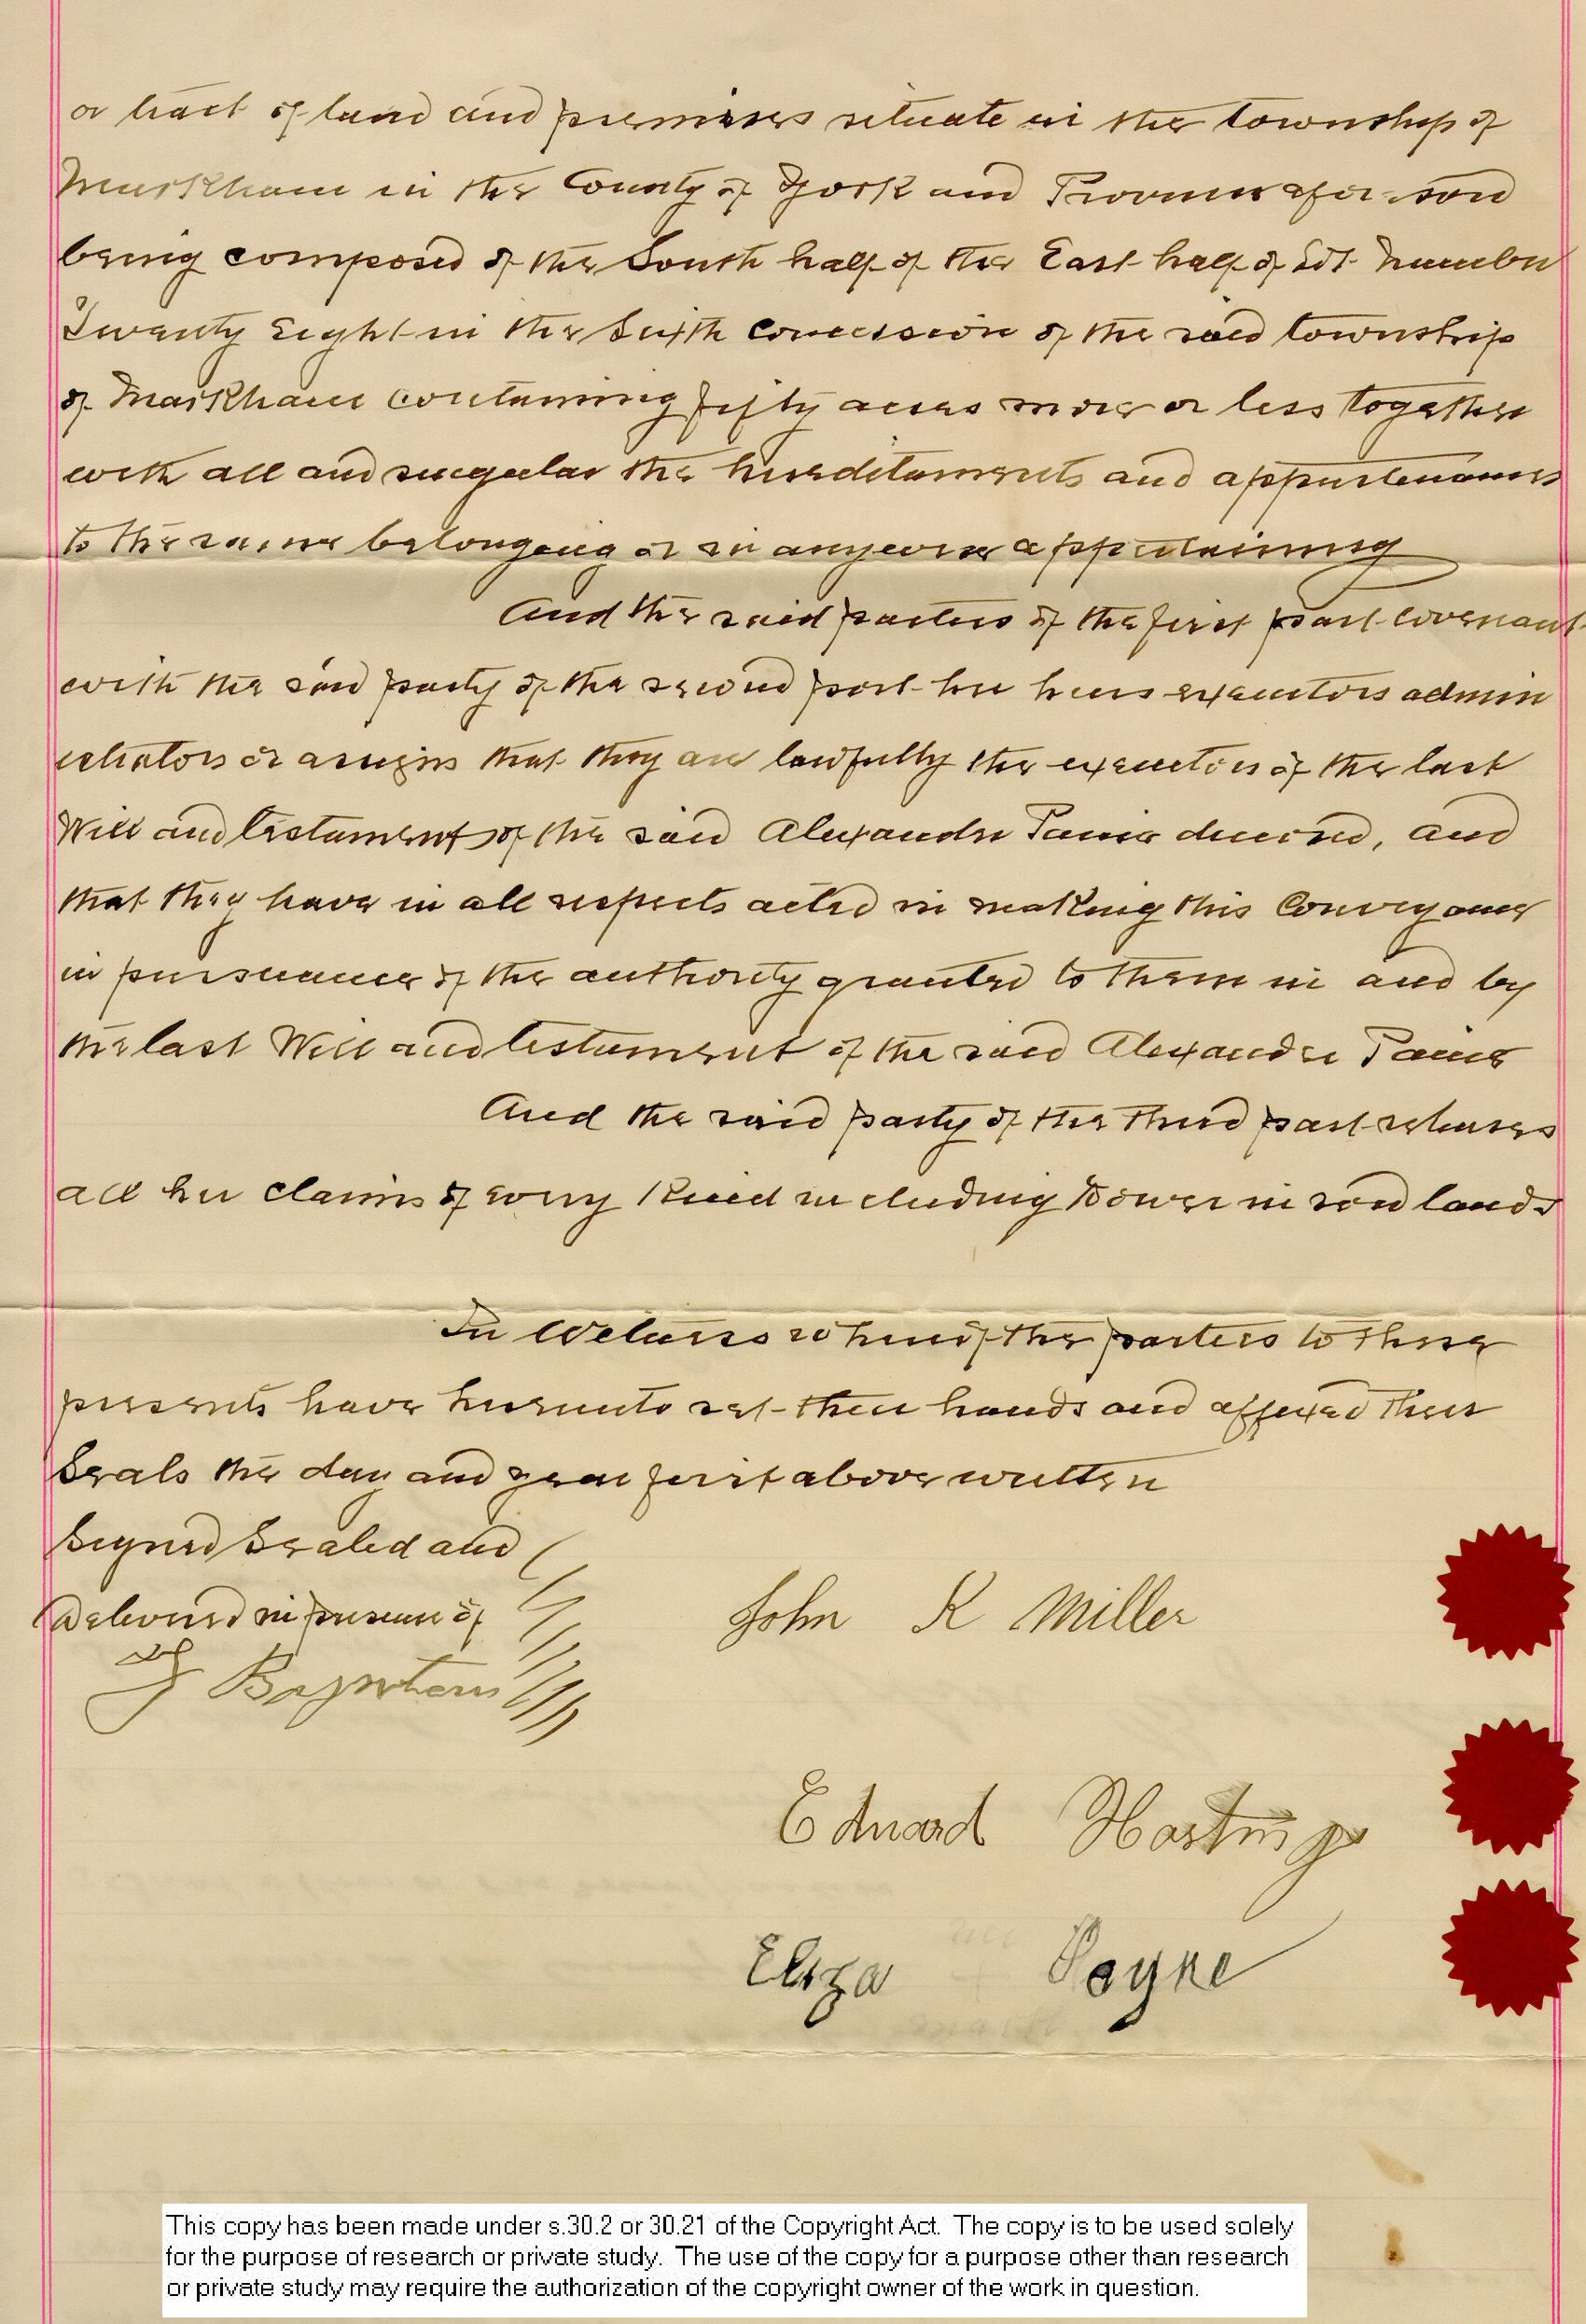 or tract of land and premises situate in the township of
Markham in the County of York and Province aforesaid
being composed of the South half of the East half of Lot Number
Twenty Eight in the Sixth Concession of the said township
of Markham containing fifty acres more or less together
with all and singular the hereditaments and appurtenances
to the same belonging or in anywise appertaining
And the said parties of the first part covenant
with the said party of the second part her heirs executors admin
istrators or assigns that they are lawfully the executors of the last
Will and testament of the said Alexander Paine deceased, and
that they have in all respects acted in making this Conveyance
in pursuance of the authority granted to them in and by
the last Will and testament of the said Alexander Paine
And the said party of the third part releases
all her claims of every Kind including Dower in said lands
In Witness whereof the parties to these
presents have hereunto set their hands and affixed their
Seals the day and year first above written
Signed Sealed and
Delivered in presence of
John K Miller
Boynton
Edward Hastings
Eliza Payne
This copy has been made under s.30.2 or 30.21 of the Copyright Act. The copy is to be used solely
for the purpose of research or private study. The use of the copy for a purpose other than research
or private study may require the authorization of the copyright owner of the work in question.